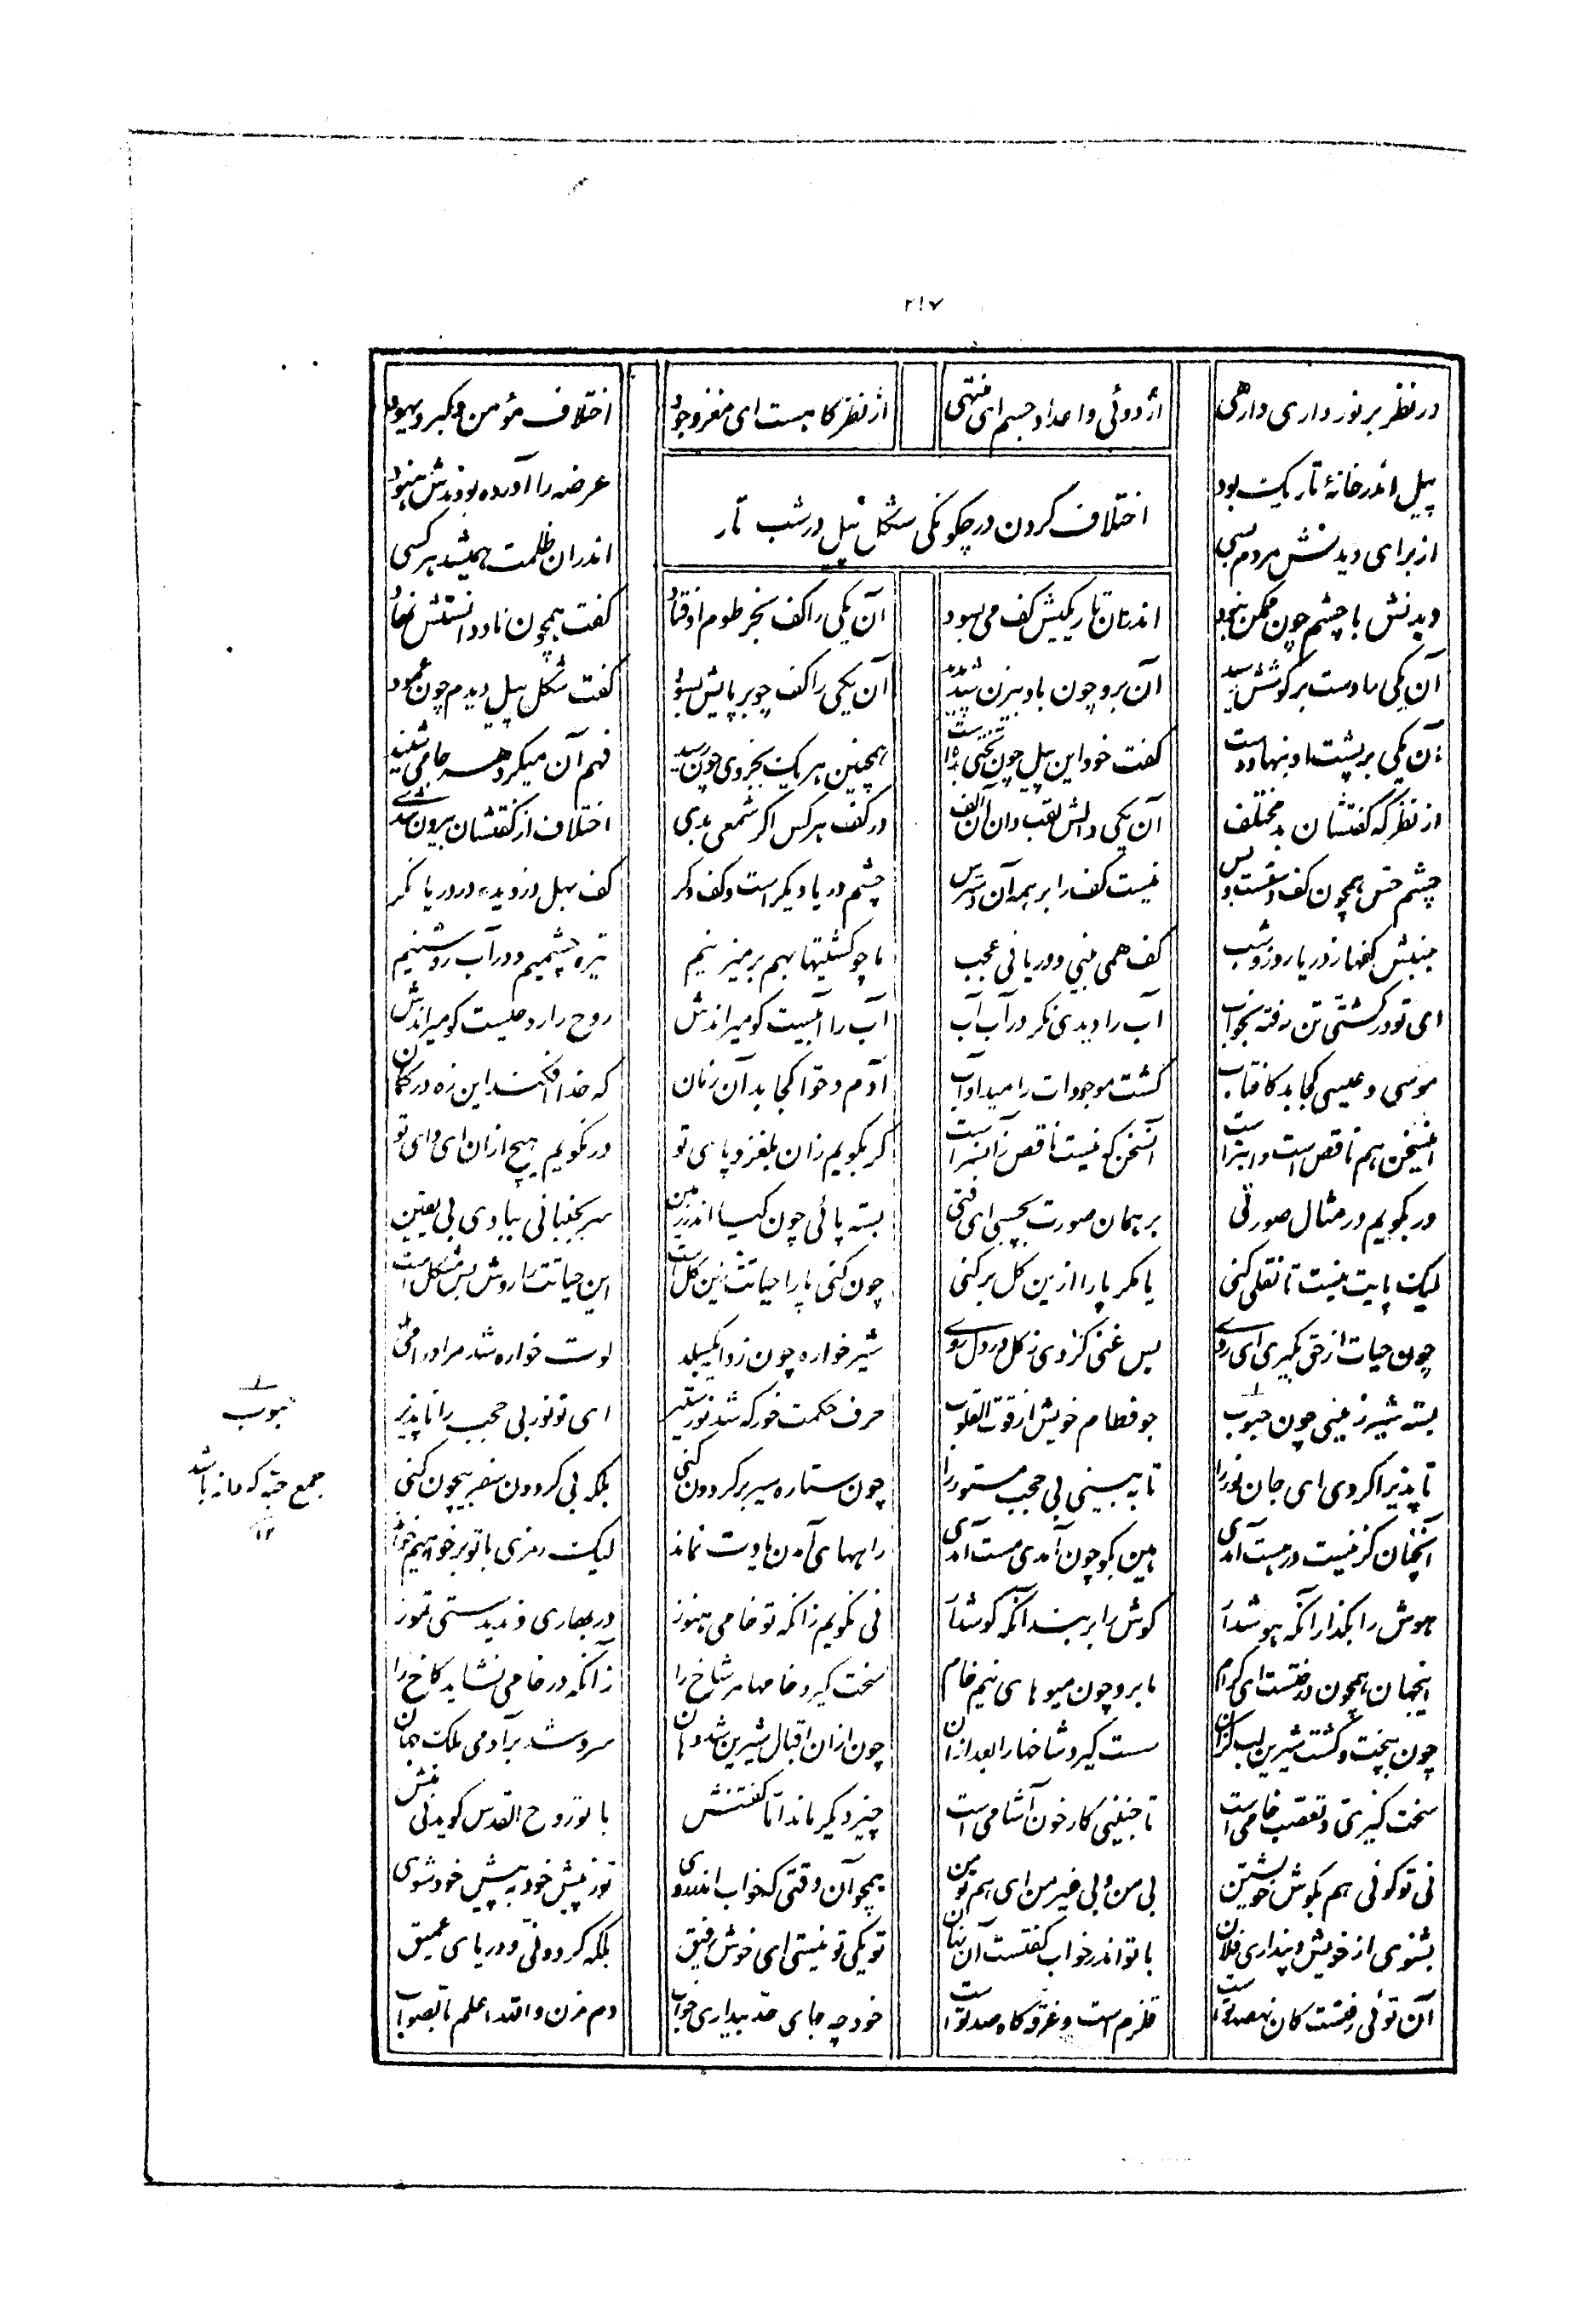 ۲۱۷
در نظر بر نور داری وارهی	از دوئی و اعداد جسم ای منتهی	از نظرگاهست ای مغز وجود	اختلاف مؤمن و گبر و یهود
اختلاف کردن در چگونگی شکل پیل در شب تار
پیل اندر خانهٔ تاریک بود	عرضه را آورده بودندش هنود
از برای دیدنش مردم بسی	اندران ظلمت همیشد هر کسی
دیدنش با چشم چون ممکن نبود	اندران تاریکیش کف می بسود	آن یکی را کف بخرطوم اوفتاد	گفت همچون ناودانستش نهاد
آن یکی را دست بر گوشش رسید	آن برو چون بادبیزن شد پدید	آن یکی را کف چو بر پایش بسود	گفت شکل پیل دیدم چون عمود
آن یکی بر پشت او بنهاد دست	گفت خود این پیل چون تختی بدست	همچنین هر یک بجزوی چون رسید	فهم آن میکرد هر جا می شنید
از نظر گه گفتشان بد مختلف	آن یکی دالش لقب داد آن الف	در کف هر کس اگر شمعی بدی	اختلاف از گفتشان بیرون شدی
چشم حس همچون کف دستست و بس	نیست کف را بر همه آن دسترس	چشم دریا دیگر است و کف دگر	کف بهل وز دیده در دریا نگر
جنبش کفها ز دریا روز و شب	کف همی بینی و دریا نی عجب	ما چو کشتیها بهم بر میزنیم	تیره چشمیم و در آب روشنیم
ای تو در کشتی تن رفته بخواب	آب را دیدی نگر در آب آب	آب را آبیست کو میراندش	روح را روحیست کو میراندش
موسی و عیسی کجا بد کافتاب	کشت موجودات را میداد آب	آدم و حوا کجا بد آن زمان	که خدا افکند این زه در کمان
اینسخن هم ناقص است و ابتر است	آنسخن که نیست ناقص زانسر است	گر بگویم زان بلغزد پای تو	ور نگویم هیچ ازان ای وای تو
ور بگویم در مثال صورتی	بر همان صورت بچسپی ای فتی	بسته پائی چون گیا اندر زمین	سر بجنبانی ببادی بی یقین
لیک پایت نیست تا نقلی کنی	یا مگر پا را ازین گل بر کنی	چون کنی پا را حیاتت زین گل است	این حیاتت را روش بس مشکل است
چون حیات از حق بگیری ای روی	پس غنی گردی ز گل در دل روی	شیر خواره چون ز دایه بگسلد	لوت خواره شد مر او را می هلد
بستهٔ شیر زمینی چون حبوب	جو فطام خویش از قوت القلوب	حرف حکمت خور که شد نور ستیر	ای تو نور بی حجب را ناپذیر
تا پذیرا گردی ای جان نور را	تا به بینی بی حجب مستور را	چون ستاره سیر بر گردون کنی	بلکه بی گردون سفر بیچون کنی
آنچنان کز نیست در هست آمدی	هین بگو چون آمدی مست آمدی	راههای آمدن یادت نماند	لیک رمزی با تو بر خواهیم خواند
هوش را بگذار آنگه هوش دار	گوش را بر بند آنگه گوش دار	نی نگویم زانکه تو خامی هنوز	در بهاری و ندیدستی تموز
اینجهان همچون درختست ای کرام	ما برو چون میوهای نیم خام	سخت گیرد خامها مر شاخ را	زانکه در خامی نشاید کاخ را
چون بپخت و گشت شیرین لب گزان	سست گیرد شاخها را بعد ازان	چون ازان اقبال شیرین شد دهان	سرد شد بر آدمی ملک جهان
سخت گیری و تعصب خامی است	تا جنینی کار خون آشامی است	چیز دیگر ماند اما گفتنش	با تو روح القدس گوید نی منش
نی تو گوئی هم بگوش خویشتن	بی من و بی غیر من ای هم تو من	همچو آن وقتی که خواب اندر روی	تو ز پیش خود به پیش خود شوی
بشنوی از خویش و پنداری فلان	با تو اندر خواب گفتست آن نهان	تو یکی تو نیستی ای خوش رفیق	بلکه گردونی و دریای عمیق
آن توئی زفتت کان نهصد تو است	قلزم است و غرقه گاه صد تو است	خود چه جای حد بیداری و خواب	دم مزن والله اعلم بالصواب
حبوب
جمع حبه که دانه باشد
۱۲